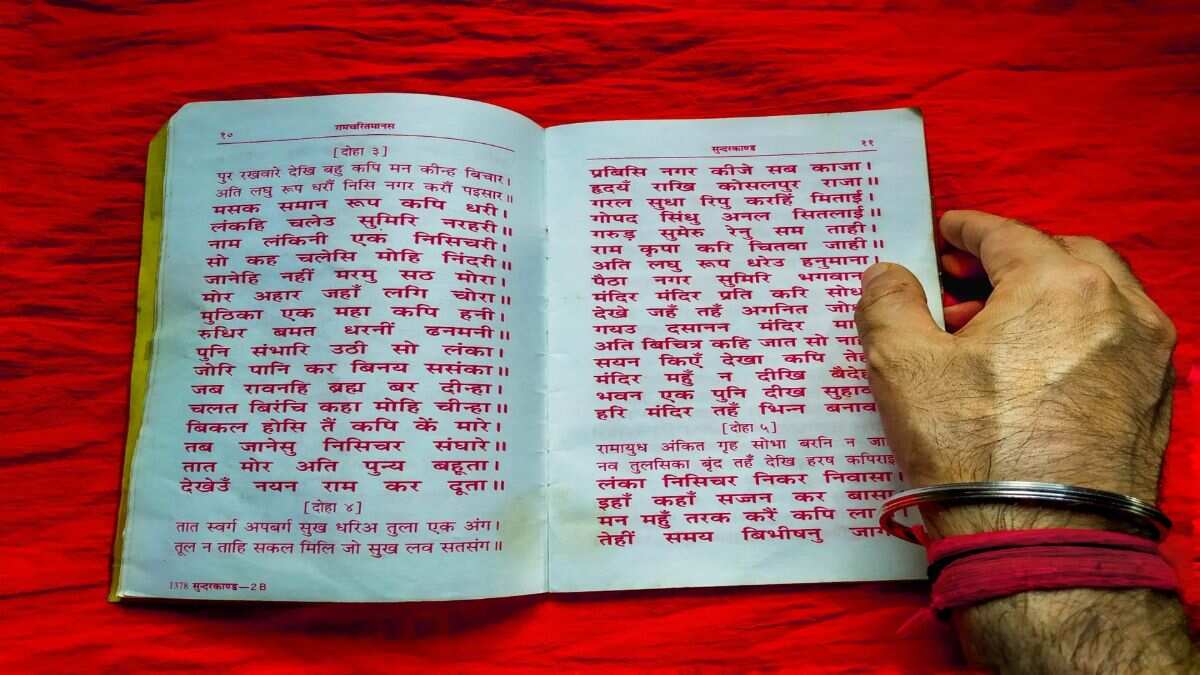 १०
रामचरितमानस
[दोहा ३]
पुर रखवारे देखि बहु कपि मन कीन्ह बिचार।
अति लघु रूप धरौं निसि नगर करौं पइसार॥
मसक समान रूप कपि धरी।
लंकहि चलेउ सुमिरि नरहरी॥
नाम लंकिनी एक निसिचरी।
सो कह चलेसि मोहि निंदरी॥
जानेहि नहीं मरमु सठ मोरा।
मोर अहार जहाँ लगि चोरा॥
मुठिका एक महा कपि हनी।
रुधिर बमत धरनीं ढनमनी॥
पुनि संभारि उठी सो लंका।
जोरि पानि कर बिनय ससंका॥
जब रावनहि ब्रह्म बर दीन्हा।
चलत बिरंचि कहा मोहि चीन्हा॥
बिकल होसि तैं कपि कें मारे।
तब जानेसु निसिचर संघारे॥
तात मोर अति पुन्य बहूता।
देखेउँ नयन राम कर दूता॥
[दोहा ४]
तात स्वर्ग अपबर्ग सुख धरिअ तुला एक अंग।
तूल न ताहि सकल मिलि जो सुख लव सतसंग॥
1378 सुन्दरकाण्ड—2 B
सुन्दरकाण्ड
११
प्रबिसि नगर कीजे सब काजा।
हृदयँ राखि कोसलपुर राजा॥
गरल सुधा रिपु करहिं मिताई।
गोपद सिंधु अनल सितलाई॥
गरुड़ सुमेरु रेनु सम ताही।
राम कृपा करि चितवा जाही॥
अति लघु रूप धरेउ हनुमाना।
पैठा नगर सुमिरि भगवान
मंदिर मंदिर प्रति करि
देखे जहँ तहँ अगनित
गयउ दसानन मंदिर
अति बिचित्र कहि जात सो
सयन किएँ देखा कपि
मंदिर महुँ न दीखि
भवन एक पुनि दीख
हरि मंदिर तहँ भिन्न
[दोहा ५]
रामायुध अंकित गृह सोभा बरनि न
नव तुलसिका बृंद तहँ देखि हरष
लंका निसिचर निकर निवासा।
इहाँ कहाँ सज्जन कर बासा
मन महुँ तरक करैं कपि
तेहीं समय बिभीषनु